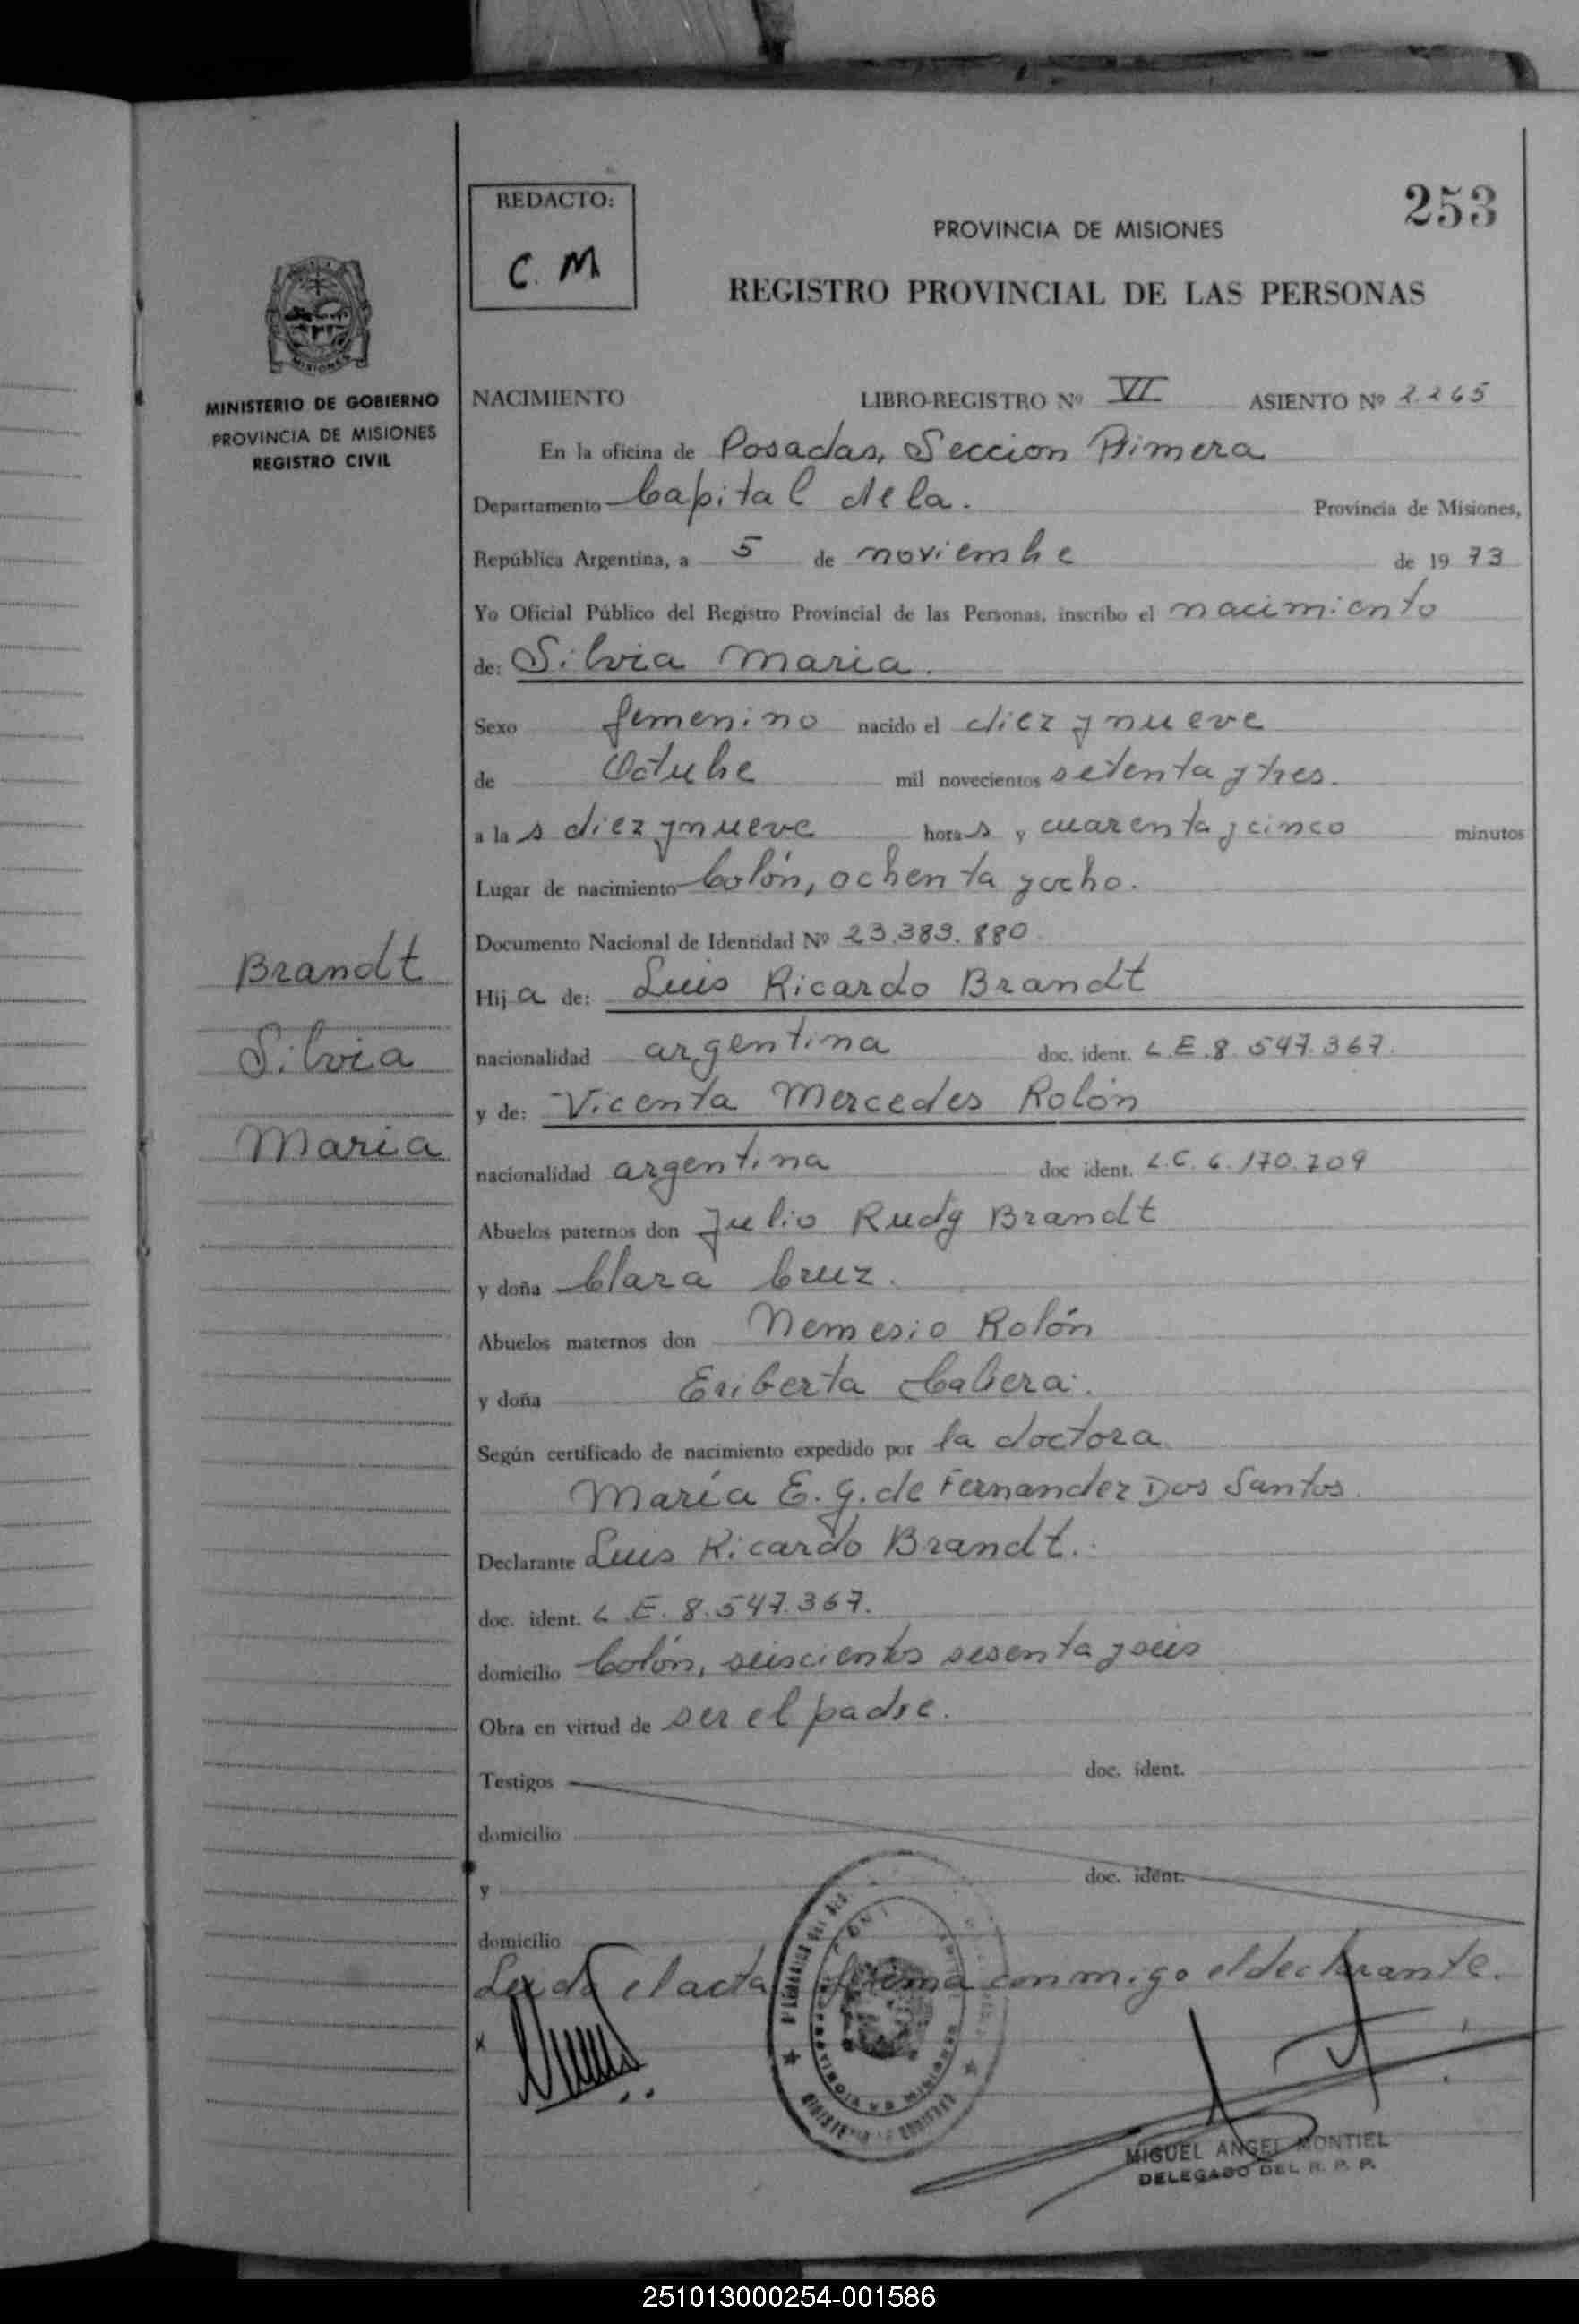 REDACTO:
C. M
253
PROVINCIA DE MISIONES
REGISTRO PROVINCIAL DE LAS PERSONAS
MISIONES
MINISTERIO DE GOBIERNO
PROVINCIA DE MISIONES
REGISTRO CIVIL
NACIMIENTO LIBRO-REGISTRO Nº VI ASIENTO Nº 2.265
En la oficina de Posadas, Seccion Primera
Departamento Capital de la. Provincia de Misiones,
República Argentina, a 5 de noviembre de 19 73
Yo Oficial Público del Registro Provincial de las Personas, inscribo el nacimiento
de: Silvia Maria.
Sexo femenino nacido el diez y nueve
de Octubre mil novecientos setenta y tres.
a la s diez y nueve hora s y cuarenta y cinco minutos
Lugar de nacimiento Colón, ochenta y ocho.
Documento Nacional de Identidad Nº 23.383.880
Hij a de: Luis Ricardo Brandt
nacionalidad argentina doc. ident. L.E. 8.547.367.
y de: Vicenta Mercedes Rolón
nacionalidad argentina doc ident. L.C. 6.170.709
Abuelos paternos don Julio Rudy Brandt
y doña Clara Cruz.
Abuelos maternos don Nemesio Rolón
y doña Eriberta Cabrera.
Según certificado de nacimiento expedido por la doctora
María E. G. de Fernandez Dos Santos.
Declarante Luis Ricardo Brandt.
doc. ident. L.E. 8.547.367.
domicilio Colón, seiscientos sesenta y seis
Obra en virtud de ser el padre.
Testigos doc. ident.
domicilio
y doc. ident.
domicilio
Leida el acta firma conmigo el declarante.
x
MIGUEL ANGEL MONTIEL
DELEGADO DEL R. P. P.
Brandt
Silvia
Maria
251013000254-001586